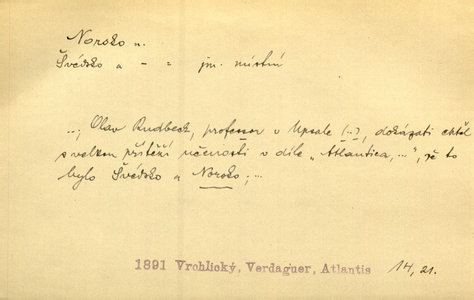 Norsko n.
Švédsko a - = jm. místní
..; Olav Rudbeck, professor v Upsale (..), dokázati chtěl
s velkou přítěží učenosti v díle „Atlantica,...", že to
bylo Švédsko a Norsko; ..
1891 Vrchlický, Verdaguer, Atlantis 14, 21.